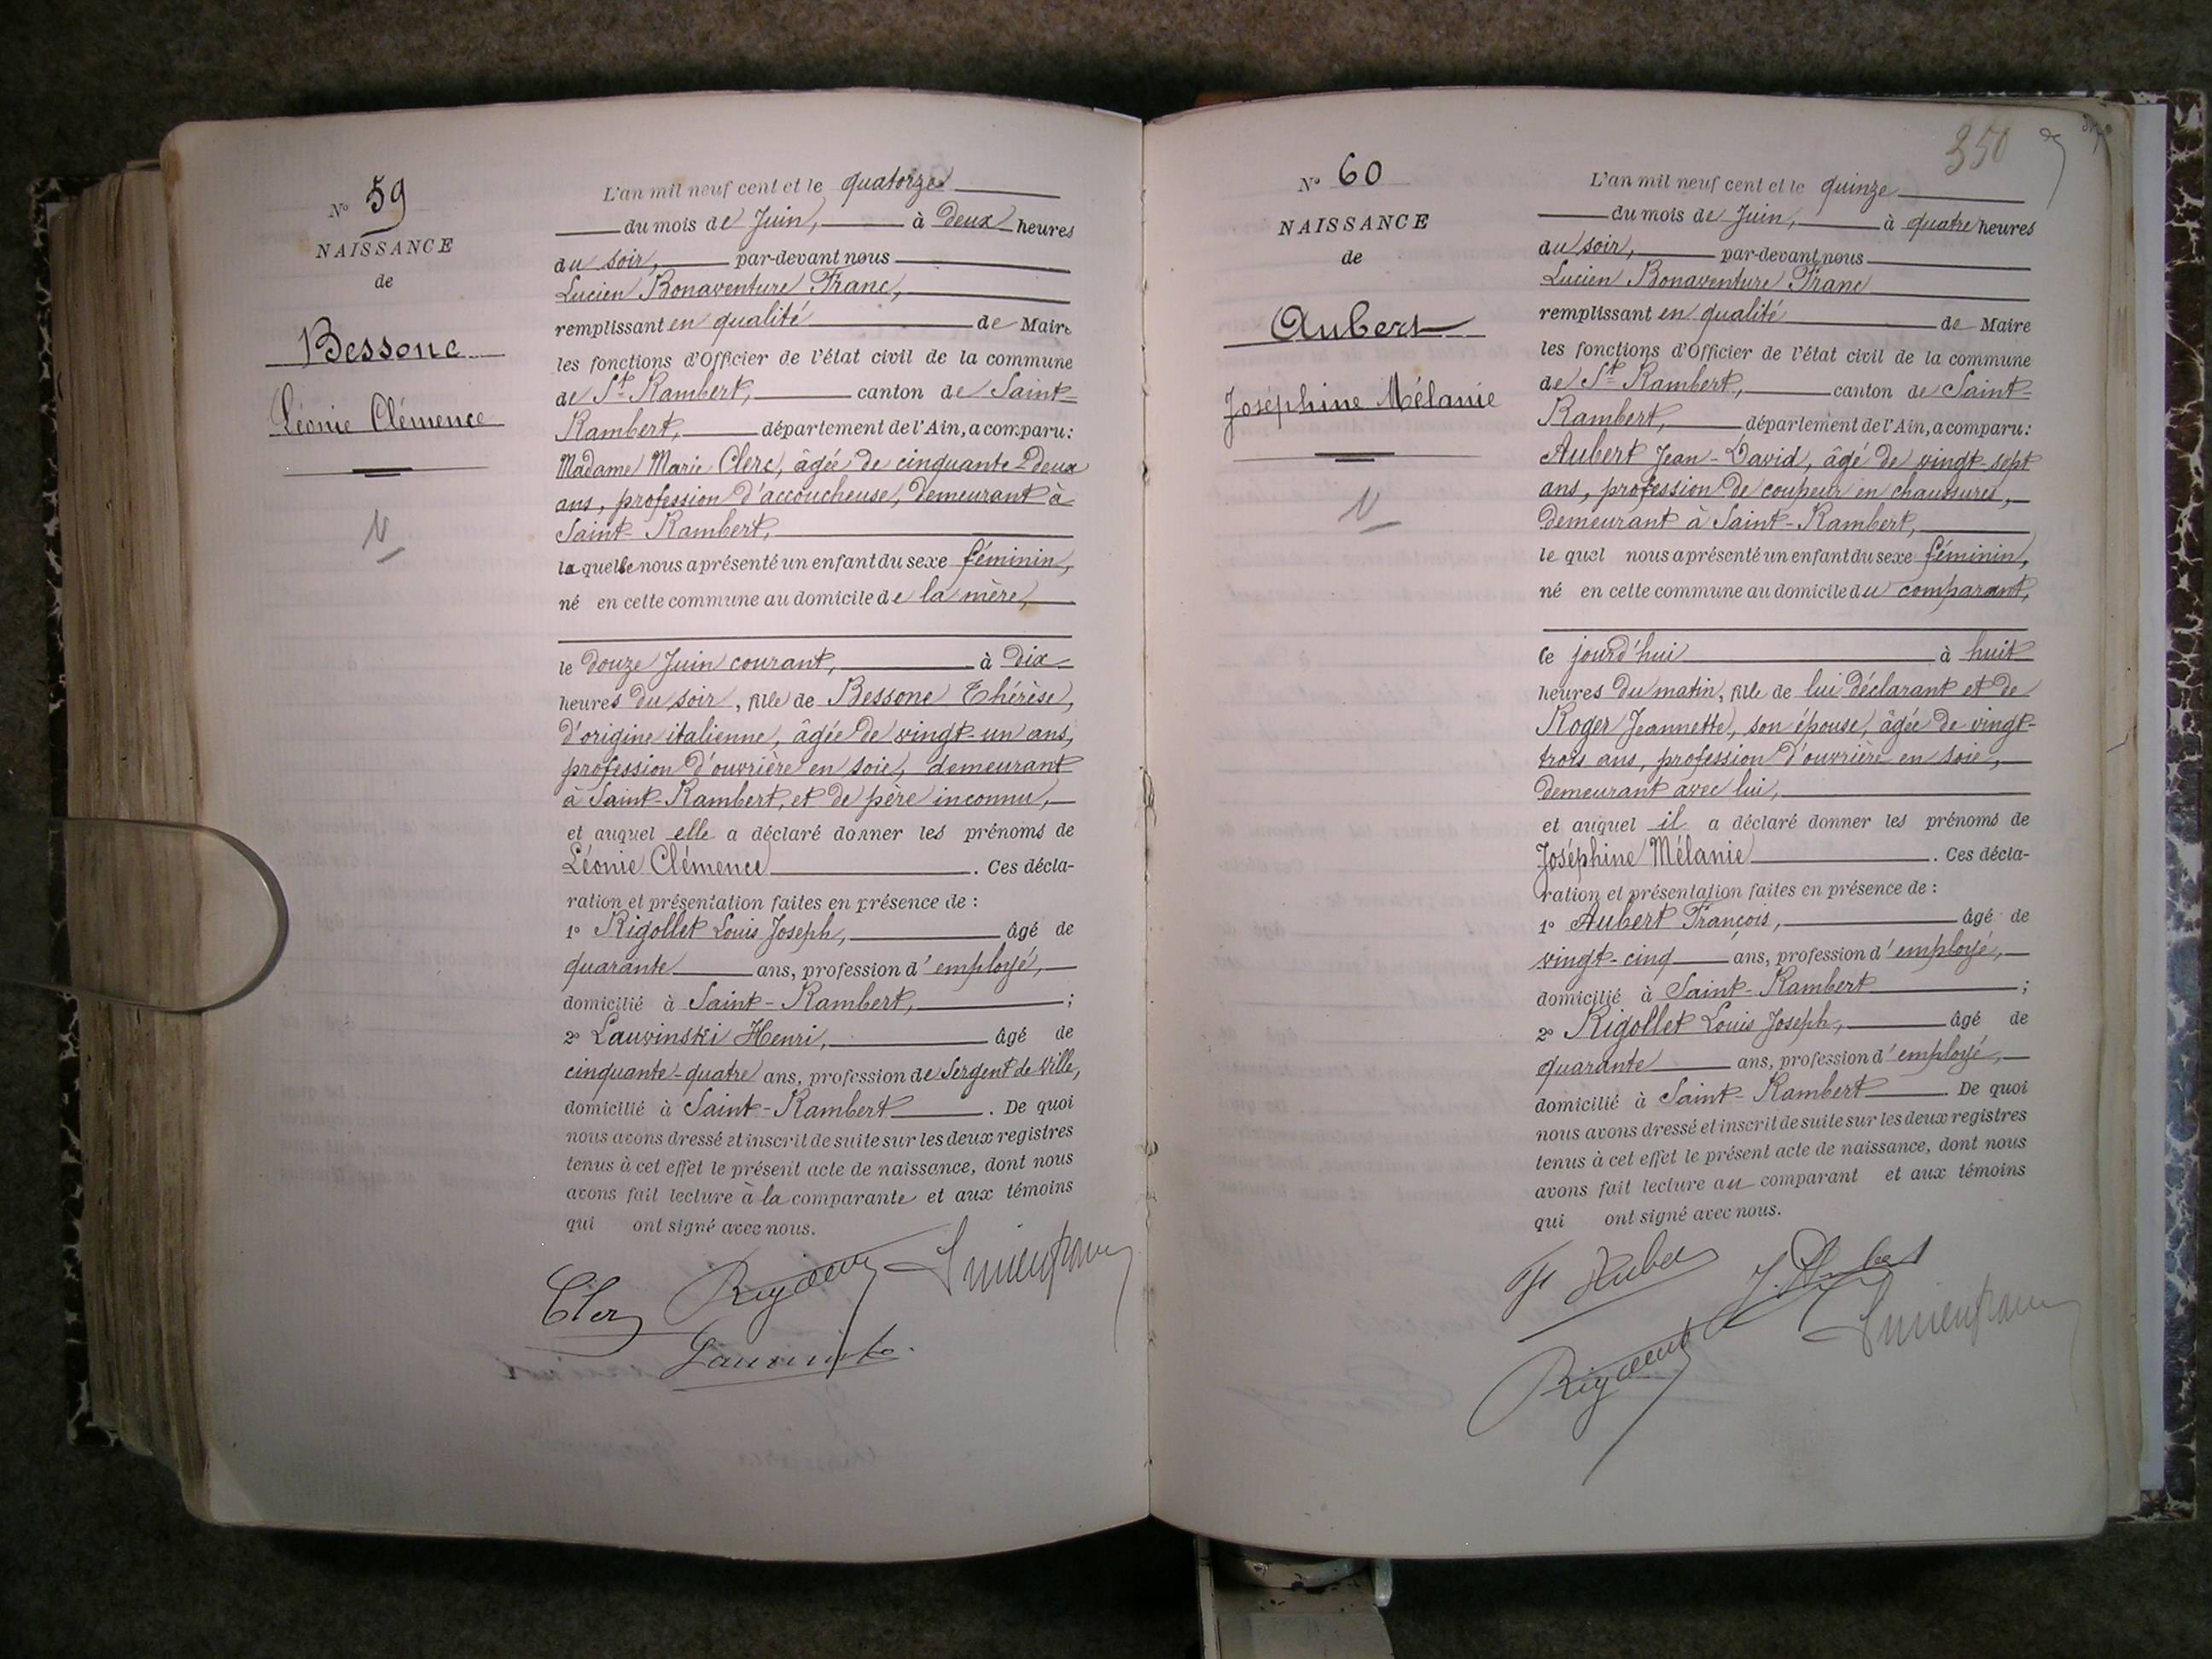 N° 59
NAISSANCE
de
Bessone
Léonie Clémence
V
L'an mil neuf cent et le quatorze
du mois de Juin, à deux heures
du soir, par-devant nous
Lucien Bonaventure Franc,
remplissant en qualité de Maire
les fonctions d'Officier de l'état civil de la commune
de St Rambert, canton de Saint-
Rambert, département de l'Ain, a comparu :
Madame Marie Clerc, âgée de cinquante-deux
ans, profession d'accoucheuse, demeurant à
Saint-Rambert,
laquelle nous a présenté un enfant du sexe féminin,
né en cette commune au domicile de la mère,
le douze Juin courant, à dix
heures du soir, fille de Bessone Thérèse,
d'origine italienne, âgée de vingt-un ans,
profession d'ouvrière en soie, demeurant
à Saint-Rambert, et de père inconnu,
et auquel elle a déclaré donner les prénoms de
Léonie Clémence. Ces décla-
ration et présentation faites en présence de :
1° Rigollet Louis Joseph, âgé de
quarante ans, profession d'employé,
domicilié à Saint-Rambert, ;
2° Lauvinski Henri, âgé de
cinquante-quatre ans, profession de Sergent de Ville,
domicilié à Saint-Rambert. De quoi
nous avons dressé et inscrit de suite sur les deux registres
tenus à cet effet le présent acte de naissance, dont nous
avons fait lecture à la comparante et aux témoins
qui ont signé avec nous.
Clerc
350
N° 60
NAISSANCE
de
Aubert
Joséphine Mélanie
V
L'an mil neuf cent et le quinze
du mois de Juin, à quatre heures
du soir, par-devant nous
Lucien Bonaventure Franc
remplissant en qualité de Maire
les fonctions d'Officier de l'état civil de la commune
de St Rambert, canton de Saint-
Rambert, département de l'Ain, a comparu :
Aubert Jean-David, âgé de vingt-sept
ans, profession de coupeur en chaussures,
demeurant à Saint-Rambert,
lequel nous a présenté un enfant du sexe féminin,
né en cette commune au domicile du comparant,
le jourd'hui à huit
heures du matin, fille de lui déclarant et de
Roger Jeannette, son épouse, âgée de vingt-
trois ans, profession d'ouvrière en soie,
demeurant avec lui,
et auquel il a déclaré donner les prénoms de
Joséphine Mélanie. Ces décla-
ration et présentation faites en présence de :
1° Aubert François, âgé de
vingt-cinq ans, profession d'employé,
domicilié à Saint-Rambert ;
2° Rigollet Louis Joseph, âgé de
quarante ans, profession d'employé,
domicilié à Saint-Rambert. De quoi
nous avons dressé et inscrit de suite sur les deux registres
tenus à cet effet le présent acte de naissance, dont nous
avons fait lecture au comparant et aux témoins
qui ont signé avec nous.
J. Aubert